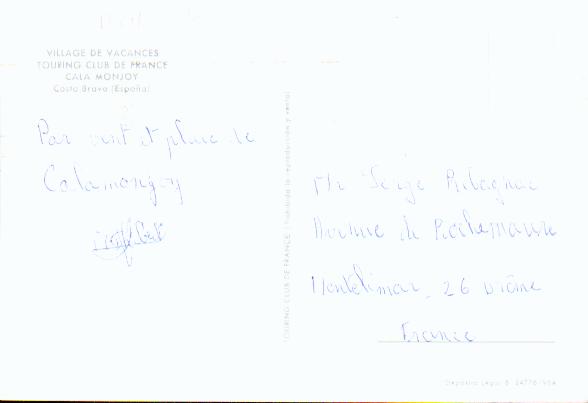 VILLAGE DE VACANCES
TOURING CLUB DE FRANCE
CALA MONJOY
Costa Brava (España)
Par vent et pluie de
Calamonjoy
TOURING CLUB DE FRANCE (Prohibida la reproducción y venta)
Mr Serge
Avenue de Rochemaure
Montélimar. 26 Drôme
France
Depósito Legal B.